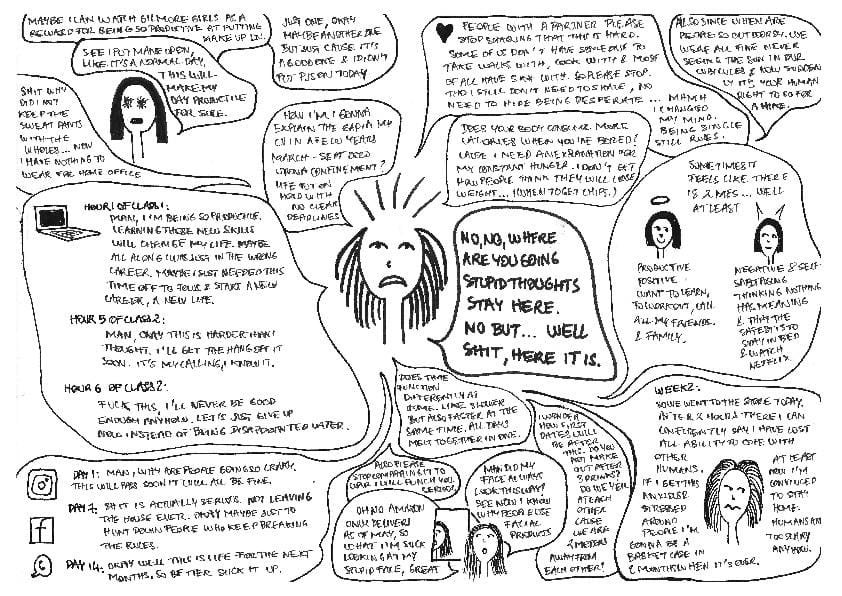 MAYBE I CAN WATCH GILMORE GIRLS AS A
REWARD FOR BEING SO PRODUCTIVE AT PUTTING
MAKE UP ON.
SEE I PUT MAKE UP ON,
LIKE IT'S A NORMAL DAY,
THIS WILL
MAKE MY
DAY PRODUCTIVE
FOR SURE.
SHIT WHY
DID I NOT
KEEP THE
SWEAT PANTS
WITH THE
WHOLES... NOW
I HAVE NOTHING TO
WEAR FOR HOME OFFICE
JUST ONE, OKAY
MAYBE ANOTHER ONE
BUT JUST CAUSE IT'S
A GOOD ONE & I DIDN'T
PUT PJS ON TODAY
HOW I'M I GONNA
EXPLAIN THE GAP IN MY
CV IN A FEW YEARS
MARCH -
CORONA CONFINEMENT?
LIFE PUT ON
HOLD WITH
NO CLEAR
DEADLINES
PEOPLE WITH A PARTNER PLEASE
STOP SHARING THAT THIS IS HARD.
SOME OF US DON'T HAVE SOMEONE TO
TAKE WALKS WITH, COOK WITH & MOST
OF ALL HAVE SEX WITH. SO PLEASE STOP.
THO I STILL DON'T NEED TO SHAVE, NO
NEED TO HIDE BEING DESPERATE... MHMH
I CHANGED
MY MIND.
BEING SINGLE
STILL RULES.
ALSO SINCE WHEN ARE
PEOPLE SO OUTDOORSY. WE
WERE ALL FINE NEVER
SEEING THE SUN IN OUR
CUBICLES & NOW SUDDENLY
IT'S YOUR HUMAN
RIGHT TO GO FOR
A HIKE.
DOES YOUR BODY CONSUME MORE
CALORIES WHEN YOU'RE BORED?
CAUSE I NEED AN EXPLANATION FOR
MY CONSTANT HUNGER. I DON'T GET
HOW PEOPLE THINK THEY WILL LOSE
WEIGHT... (WHEN TO GET CHIPS.)
SOMETIMES IT
FEELS LIKE THERE
IS 2 MES... WELL
AT LEAST
PRODUCTIVE
POSITIVE
WANT TO LEARN,
TO WORKOUT, CALL
ALL MY FRIENDS.
& FAMILY.
NEGATIVE & SELF-
SABOTAGING
THINKING NOTHING
HAS MEANING
& THAT THE
SAFEST IS TO
STAY IN BED
& WATCH
NETFLIX
HOUR 1 OF CLASS 1:
MAN, I'M BEING SO PRODUCTIVE.
LEARNING THOSE NEW SKILLS
WILL CHANGE MY LIFE. MAYBE
ALL ALONG I WAS JUST IN THE WRONG
CAREER. MAYBE I JUST NEEDED THIS
TIME OFF TO FOCUS & START A NEW
CAREER, A NEW LIFE.
HOUR 5 OF CLASS 2:
MAN, OKAY THIS IS HARDER THAN I
THOUGHT. I'LL GET THE HANG OF IT
SOON. IT'S MY CALLING, I KNOW IT.
HOUR 6 OF CLASS 2:
FUCK THIS, I'LL NEVER BE GOOD
ENOUGH ANYHOW. LET'S JUST GIVE UP
NOW INSTEAD OF BEING DISAPPOINTED LATER.
NO, NO, WHERE
ARE YOU GOING
STUPID THOUGHTS
STAY HERE.
NO BUT... WELL
SHIT, HERE IT IS.
DOES TIME
FUNCTION
DIFFERENTLY AT
HOME. LIKE SLOWER
BUT ALSO FASTER AT THE
SAME TIME. ALL DAYS
MELT TOGETHER IN ONE.
DAY 1: MAN, WHY ARE PEOPLE GOING SO CRAZY.
THIS WILL PASS SOON IT WILL ALL BE FINE.
DAY 7: SH*T IS ACTUALLY SERIOUS. NOT LEAVING
THE HOUSE EVER. OKAY MAYBE JUST TO
HUNT DOWN PEOPLE WHO KEEP BREAKING
THE RULES.
DAY 14: OKAY WELL THIS IS LIFE FOR THE NEXT
MONTHS, SO BETTER SUCK IT UP.
ALSO PLEASE
STOP COMPARING IT TO
WAR I WILL PUNCH YOU
SERIOUSLY
OH NO AMAZON
ONLY DELIVERS
AS OF MAY, SO
WHAT I'M STUCK
LOOKING AT MY
STUPID FACE, GREAT
MAN DID MY
FACE ALWAYS
LOOK THIS WAY?
SEE NOW I KNOW
WHY PEOPLE USE
FACIAL
PRODUCTS
I WONDER
HOW FIRST
DATES WILL
BE AFTER
THIS. DO YOU
JUST MAKE
OUT AFTER
3 DRINKS?
DO WE YELL
AT EACH
OTHER
CAUSE
WE ARE
2 METERS
AWAY FROM
EACH OTHER?
WEEK 2:
SO WE WENT TO THE STORE TODAY.
AFTER 2 HOURS THERE I CAN
CONFIDENTLY SAY I HAVE LOST
ALL ABILITY TO COPE WITH
OTHER
HUMANS.
IF I GET THIS
ANXIOUS/
STRESSED
AROUND
PEOPLE I'M
GONNA BE A
BASKET CASE IN
2 MONTHS WHEN IT'S OVER.
AT LEAST
NOW I'M
CONVINCED
TO STAY
HOME.
HUMANS ARE
TOO SCARY
ANYHOW.